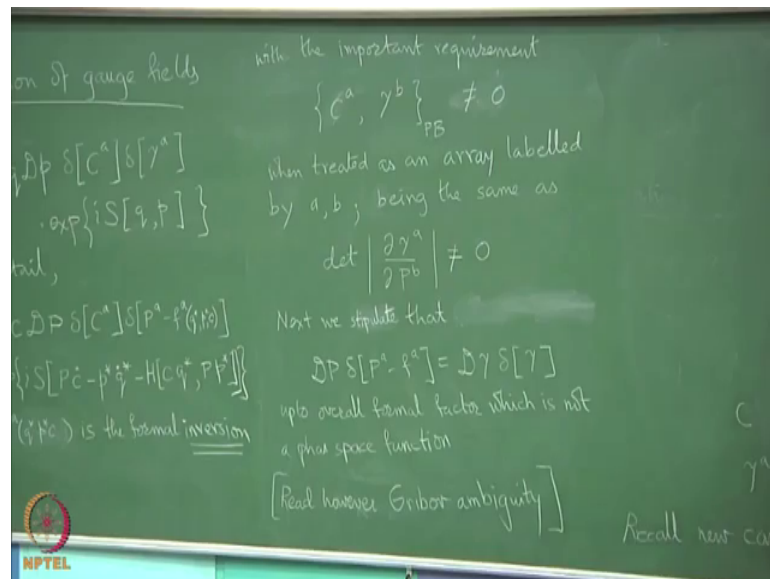 on of gauge fields
Dp δ[C^a] δ[γ^a]
. exp{iS[q,p]}
tail,
C DP δ[C^a] δ[P^a - f^a(q*,p*,c)]
{iS[Pċ - p*q̇* - H[Cq*, Pp*]]}
(q* p* c) is the formal inversion
with the important requirement
{C^a, γ^b}_PB ≠ 0
when treated as an array labelled
by a, b ; being the same as
det |∂γ^a/∂P^b| ≠ 0
Next we stipulate that
DP δ[P^a - f^a] = Dγ δ[γ]
upto overall formal factor which is not
a phas space function
[Read however Gribov ambiguity]
C
γ^a
Recall new ca
NPTEL